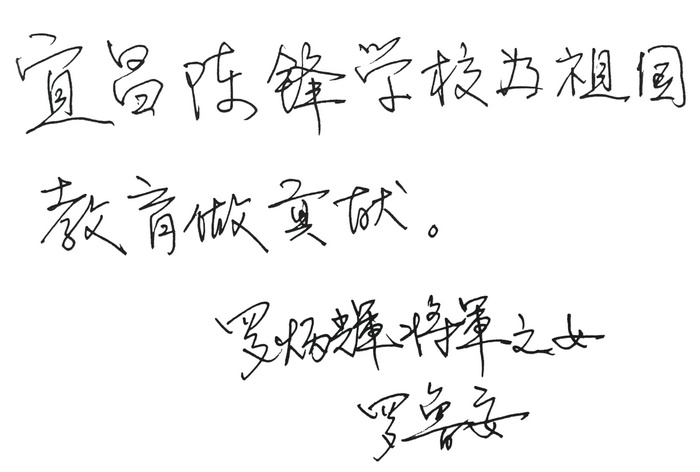 宜昌陈锋学校为祖国
教育做贡献。
罗炳辉将军之女
罗鲁安